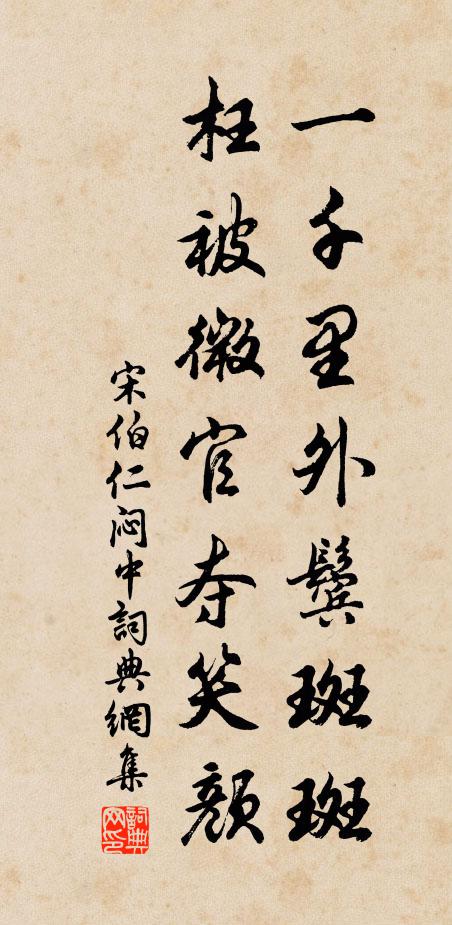 一千里外鬢斑斑
枉被微官夺笑顏
宋伯仁闷中詞典網集
詞典网印